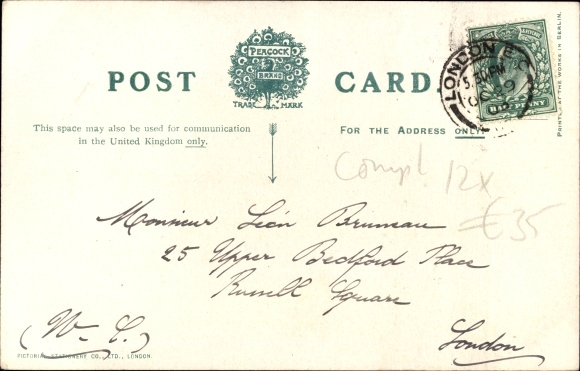 POST CARD.
PEACOCK
BRAND
TRADE MARK
This space may also be used for communication
in the United Kingdom only.
FOR THE ADDRESS ONLY.
LONDON E.C.
5.30PM
OC
HALFPENNY
PRINTED AT THE WORKS IN BERLIN.
Compl. 12x
€35
Monsieur Léon Bruneau
25 Upper Bedford Place
Russell Square
(W. C.)
London
PICTORIAL STATIONERY CO., LTD., LONDON.